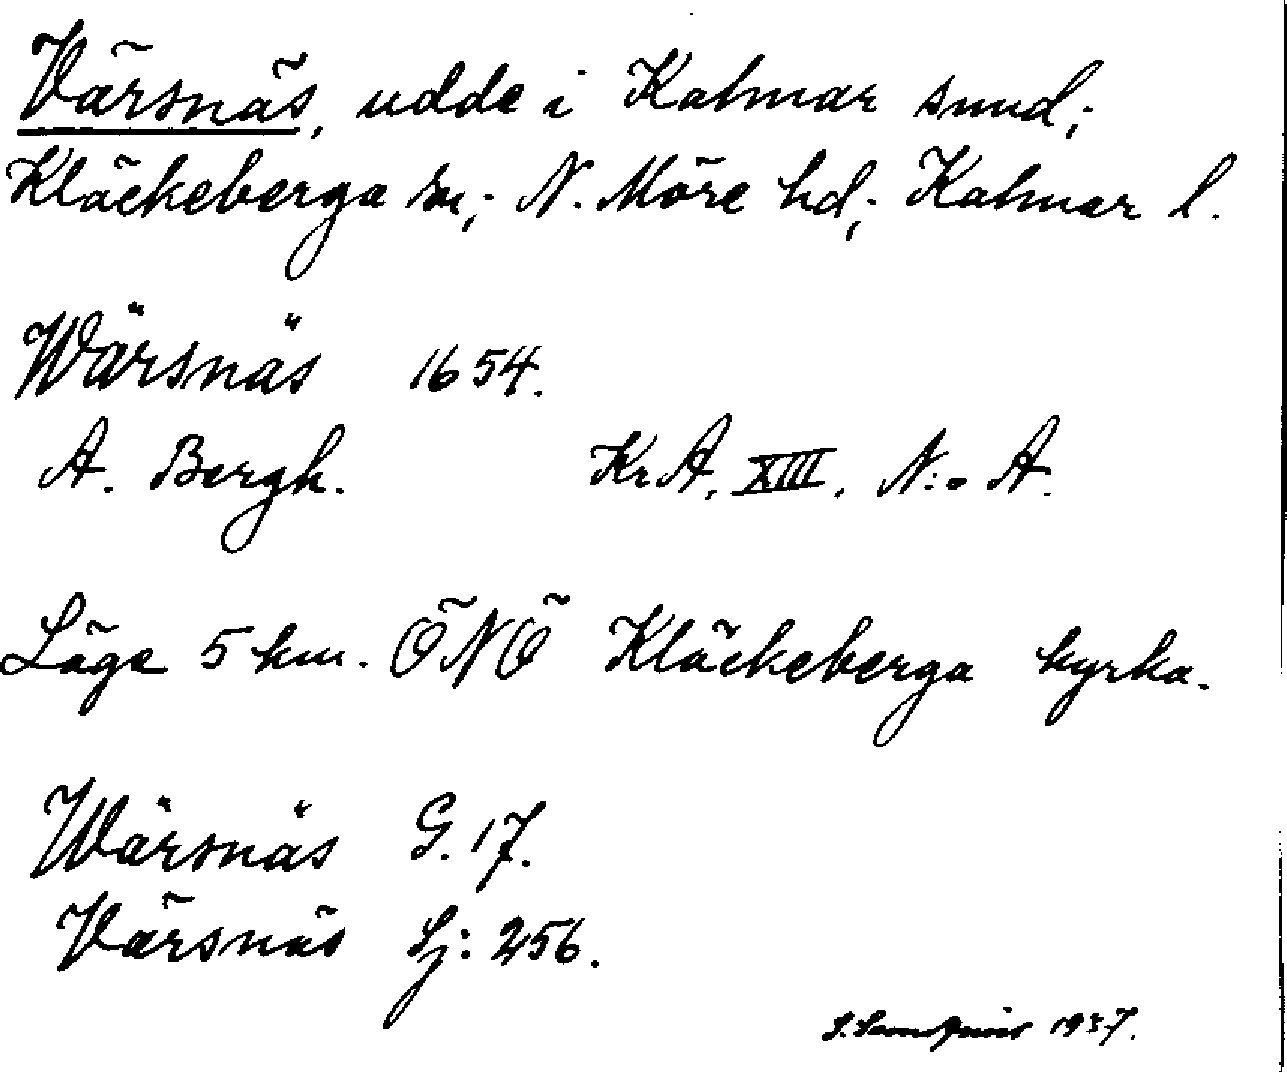 Värsnäs, udde i Kalmar sund;
Kläckeberga sn; N. Möre hd; Kalmar l.
Wärsnäs 1654.
A. Bergh. KrA, XIII, N:o A.
Läge 5 km. ÖNÖ Kläckeberga kyrka.
Wärsnäs G. 17.
Värsnäs Sj: 256.
1937.